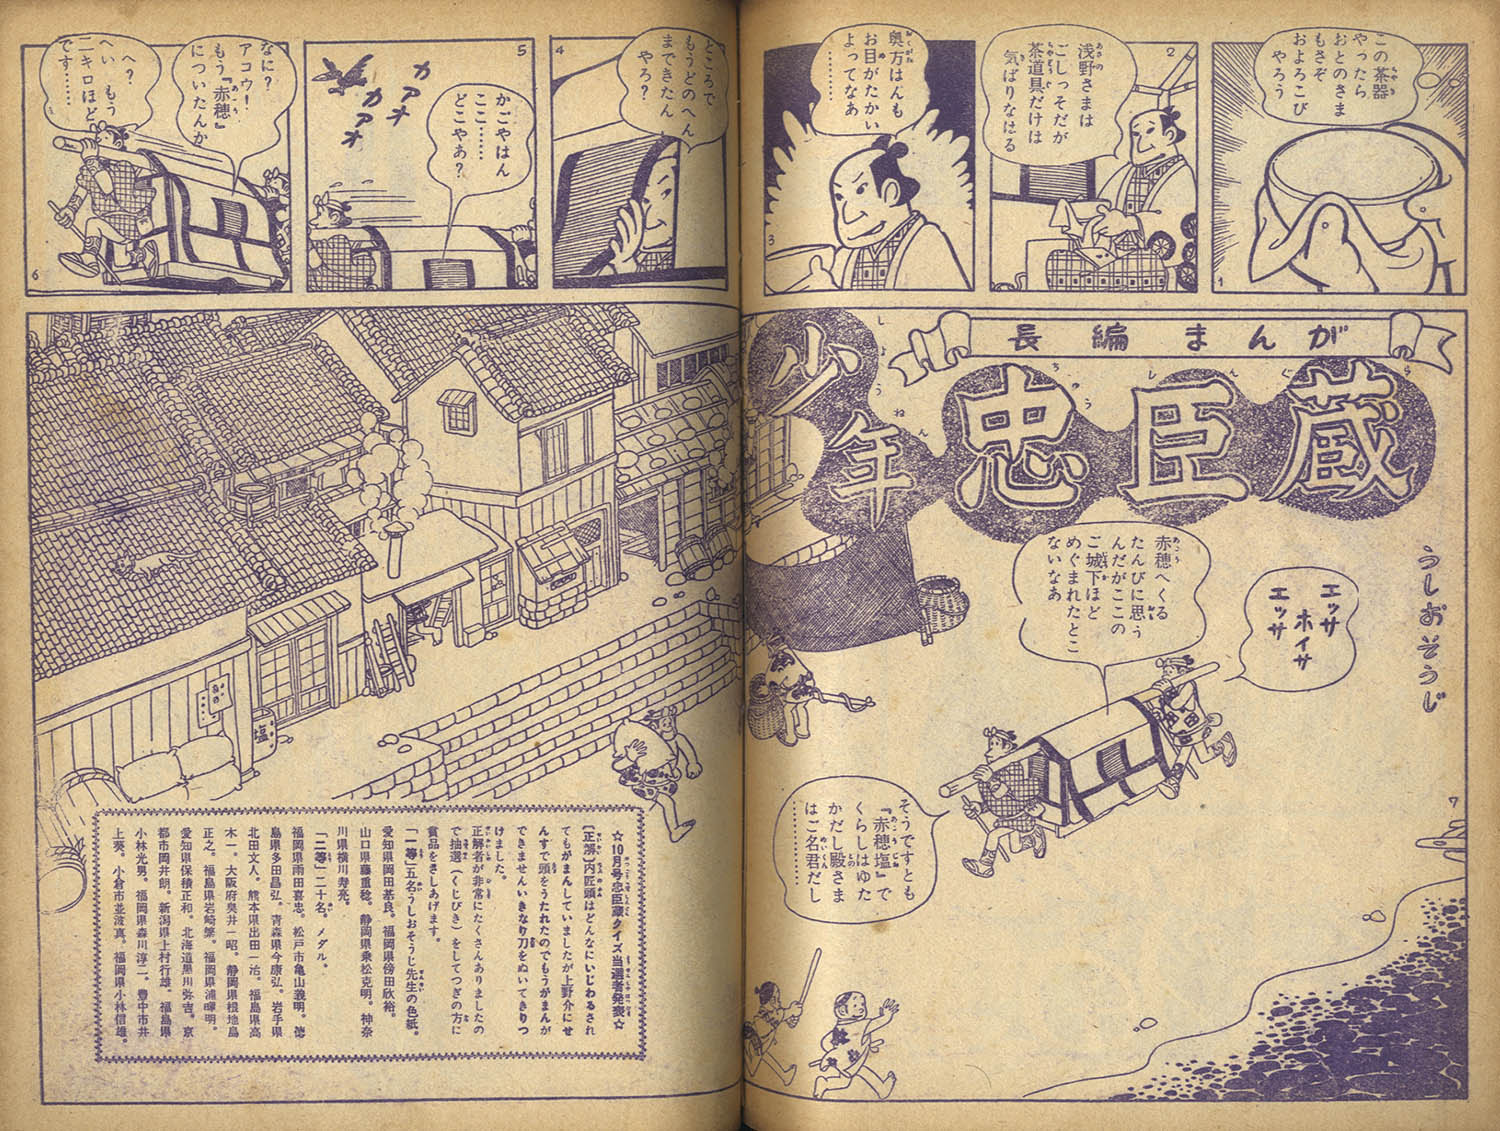 この茶器
やったら
おとのさま
もさぞ
およろこび
やろう
1
浅野さまは
ごしっそだが
茶道具だけは
気ばりなはる
2
奥方はんも
お目がたかい
よってなあ
…………
3
ところで
もうどのへん
まできたん
やろ？
4
カアオ
カアオ
かごやはん
ここ……
どこやあ？
5
なに？
アコウ！
もう『赤穂』
についたんか
へ？
へい もう
二キロほど
です……
6
長編まんが
少年忠臣蔵
しょうねんちゅうしんぐら
うしおそうじ
エッサ
ホイサ
エッサ
赤穂へくる
たんびに思う
んだがここの
ご城下ほど
めぐまれたとこ
ないなあ
そうですとも
『赤穂塩』で
くらしはゆた
かだし殿さま
はご名君だし
…………
7
塩
☆10月号忠臣蔵クイズ当選者発表☆
〔正誤〕内匠頭はどんなにいじわるされ
てもがまんしていましたが上野介にせ
んすで頭をうたれたのでもうがまんが
できませんいきなり刀をぬいてきりつ
けました。
正解者が非常にたくさんありましたの
で抽選（くじびき）をしてつぎの方に
賞品をさしあげます。
「一等」五名うしおそうじ先生の色紙。
愛知県岡田基良。福岡県傍田欣裕。
山口県藤重稔。静岡県乗松克明。神奈
川県横川寿亮。
「二等」二十名。メダル。
福岡県雨田喜忠。松戸市亀山義明。徳
島県多田昌弘。青森県今康弘。岩手県
北田文人。熊本県出田一治。福島県高
木一。大阪府奥井一昭。静岡県根地島
正之。福島県岩崎繁。福岡県浦暉明。
愛知県保積正和。北海道黒川弥吉。京
都市岡井朗。新潟県上村行雄。福島県
小林光男。福岡県森川淳二。豊中市井
上葵。小倉市並波真。福岡県小林信雄。